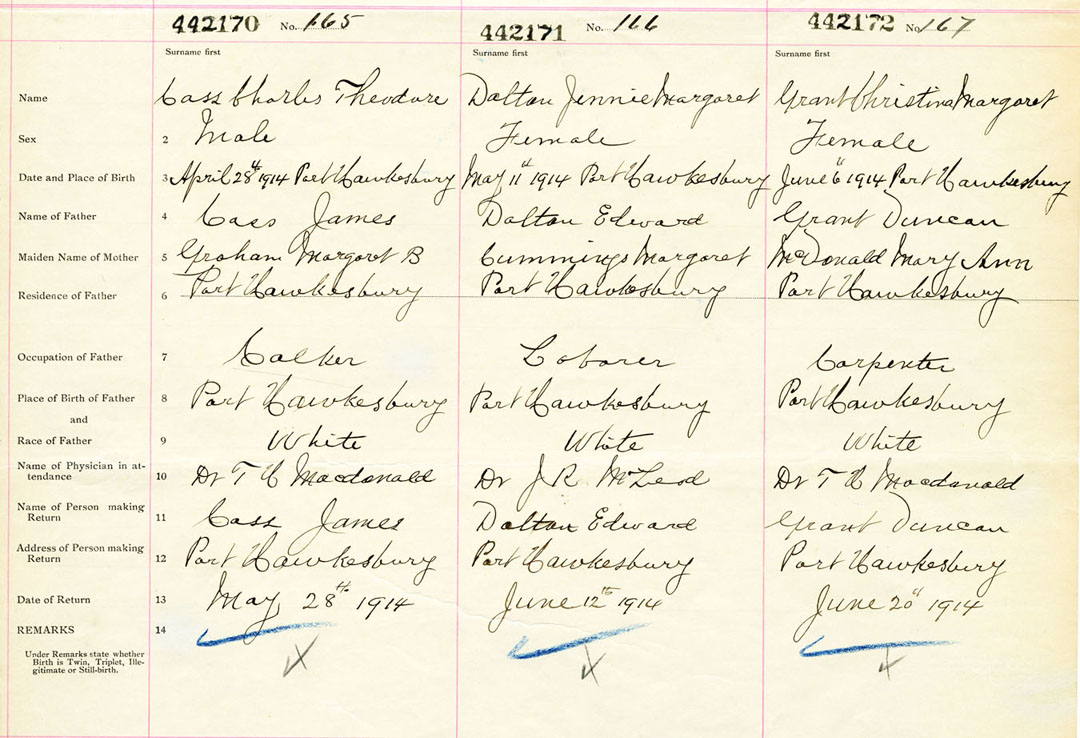 442170 No. 165 442171 No. 166 442172 No. 167
Surname first Surname first Surname first
Name Cass Charles Theodore Dalton Jennie Margaret Grant Christina Margaret
Sex 2 Male Female Female
Date and Place of Birth 3 April 28th 1914 Port Hawkesbury May 11th 1914 Port Hawkesbury June 6th 1914 Port Hawkesbury
Name of Father 4 Cass James Dalton Edward Grant Duncan
Maiden Name of Mother 5 Graham Margaret B Cummings Margaret McDonald Mary Ann
Residence of Father 6 Port Hawkesbury Port Hawkesbury Port Hawkesbury
Occupation of Father 7 Calker Laborer Carpenter
Place of Birth of Father 8 Port Hawkesbury Port Hawkesbury Port Hawkesbury
and
Race of Father 9 White White White
Name of Physician in at-
tendance 10 Dr T H Macdonald Dr J R McLeod Dr T H Macdonald
Name of Person making
Return 11 Cass James Dalton Edward Grant Duncan
Address of Person making
Return 12 Port Hawkesbury Port Hawkesbury Port Hawkesbury
Date of Return 13 May 28th 1914 June 12th 1914 June 20th 1914
REMARKS 14
Under Remarks state whether
Birth is Twin, Triplet, Ille-
gitimate or Still-birth.